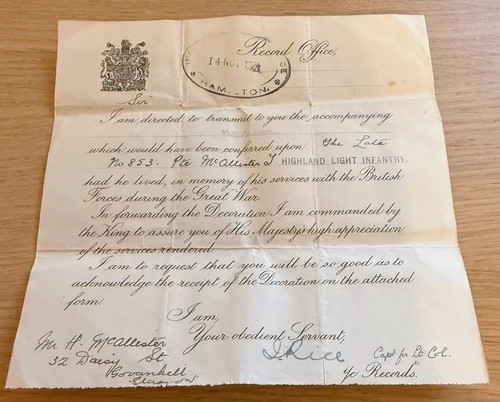 Record Office,
14 NOV 1921
HAMILTON.
Sir,
I am directed to transmit to you the accompanying
which would have been conferred upon The Late
No 853. Pte McAllester J HIGHLAND LIGHT INFANTRY.
had he lived, in memory of his services with the British
Forces during the Great War.
In forwarding the Decoration I am commanded by
the King to assure you of His Majesty's high appreciation
of the services rendered.
I am to request that you will be so good as to
acknowledge the receipt of the Decoration on the attached
form.
I am,
Your obedient Servant,
Mr H. McAllester
32 Daisy St
Govanhill
Glasgow
Capt for Lt Col.
i/c Records.